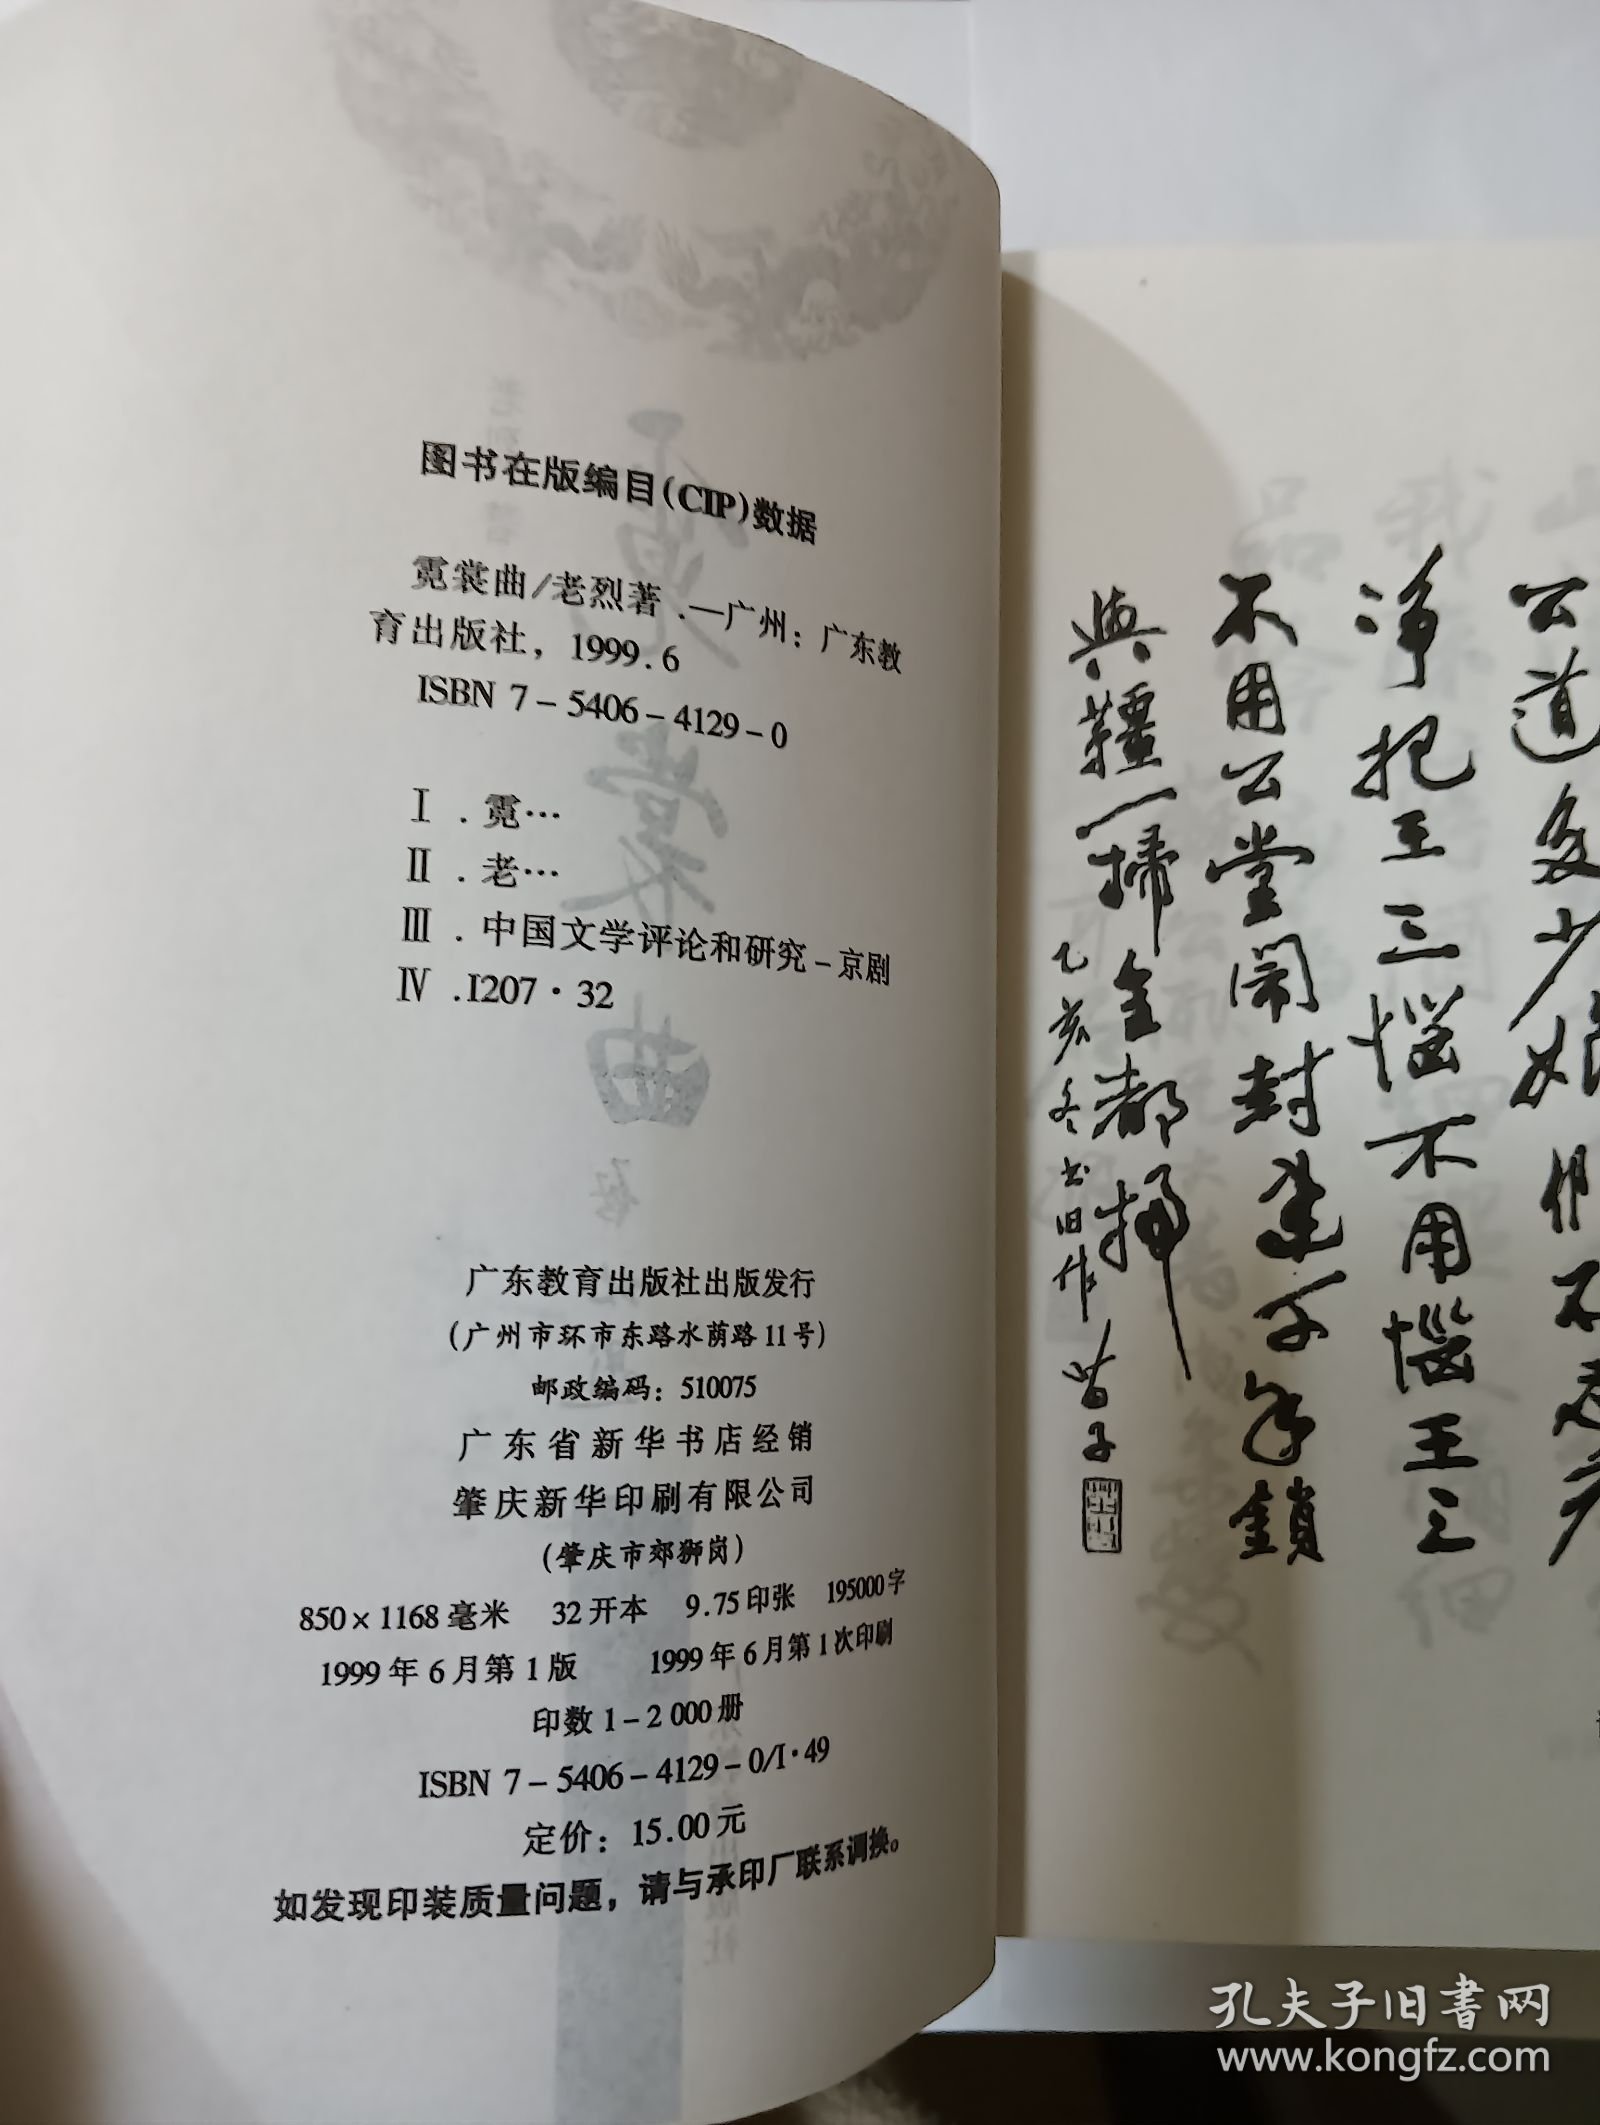 图书在版编目(CIP)数据
霓裳曲/老烈著．—广州：广东教
育出版社，1999.6
ISBN 7-5406-4129-0
Ⅰ．霓…
Ⅱ．老…
Ⅲ．中国文学评论和研究-京剧
Ⅳ．I207·32
广东教育出版社出版发行
(广州市环市东路水荫路11号)
邮政编码：510075
广东省新华书店经销
肇庆新华印刷有限公司
(肇庆市郊狮岗)
850×1168毫米 32开本 9.75印张 195000字
1999年6月第1版 1999年6月第1次印刷
印数1-2 000册
ISBN 7-5406-4129-0/I·49
定价：15.00元
如发现印装质量问题，请与承印厂联系调换。
公道多少
净把王三恼不用恼王三
不用公堂闹封
鎖
一掃金都掃
乙亥冬书旧作
孔夫子旧书网
www.kongfz.com